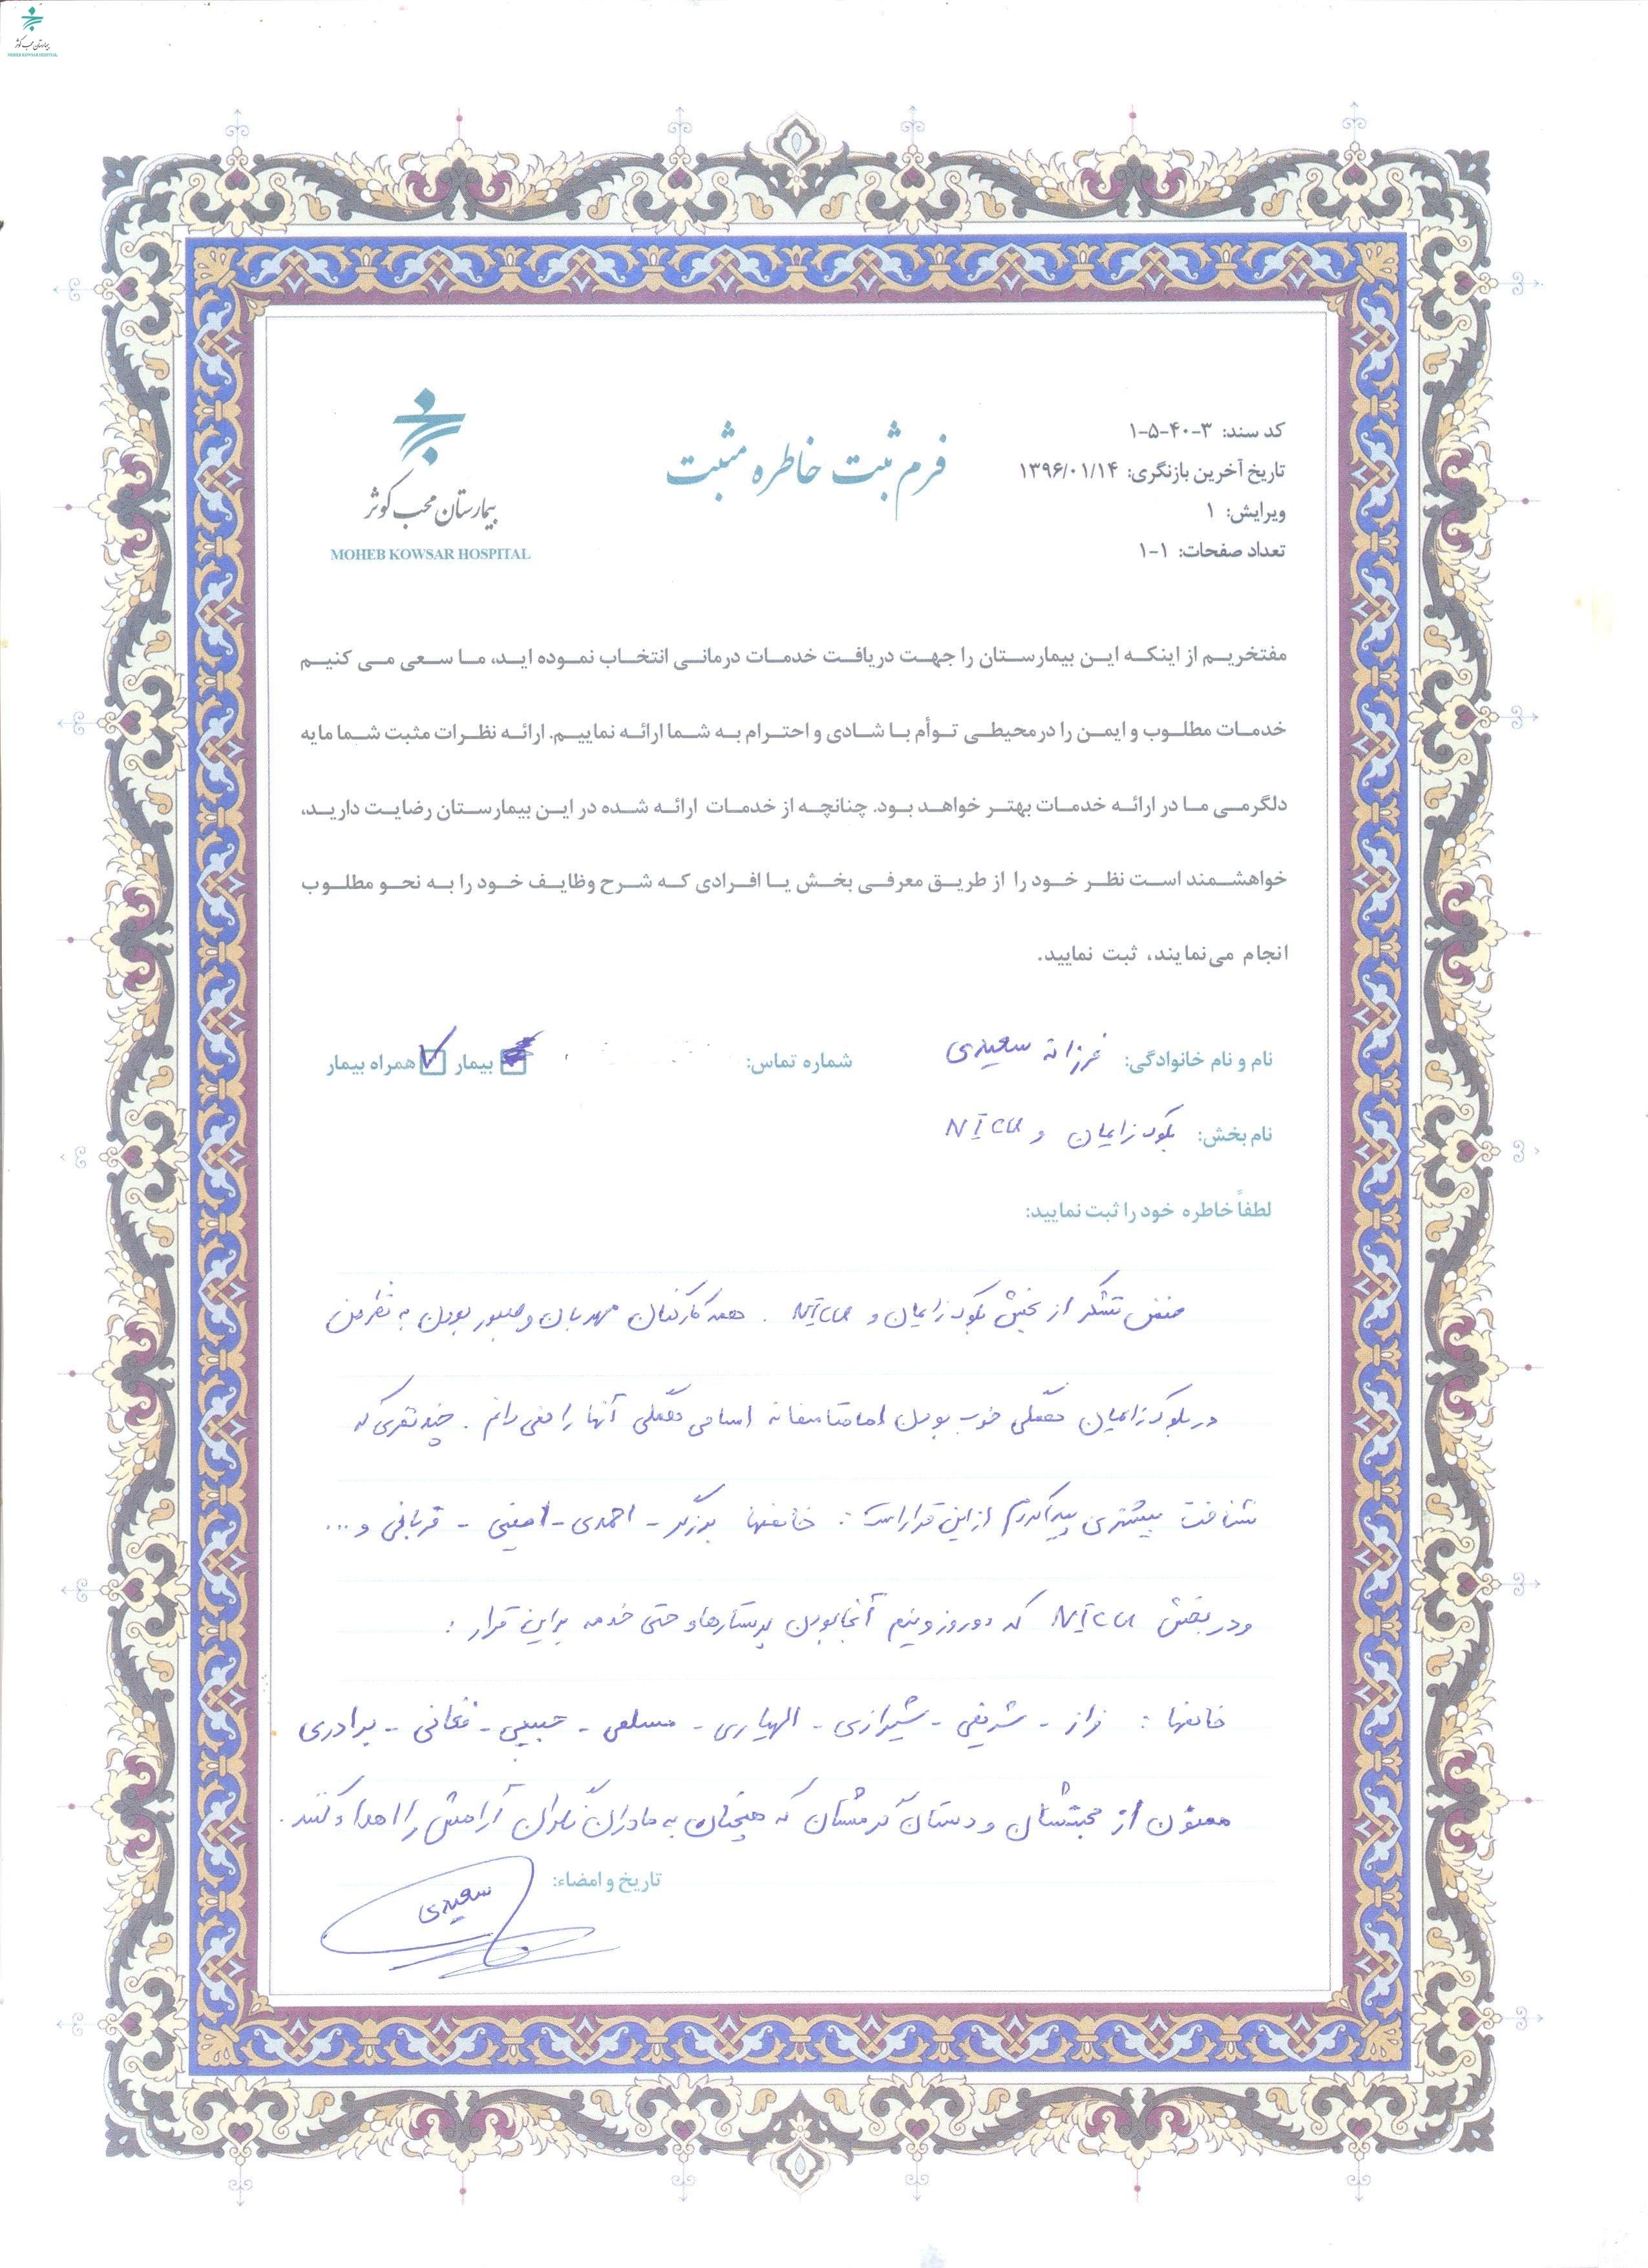 بیمارستان محب کوثر
MOHEB KOWSAR HOSPITAL
کد سند: ۳-۴۰-۵-۱
تاریخ آخرین بازنگری: ۱۳۹۶/۰۱/۱۴
ویرایش: ۱
تعداد صفحات: ۱-۱
فرم ثبت خاطره مثبت
بیمارستان محب کوثر
MOHEB KOWSAR HOSPITAL
مفتخریم از اینکه این بیمارستان را جهت دریافت خدمات درمانی انتخاب نموده اید، ما سعی می کنیم
خدمات مطلوب و ایمن را در محیطی توأم با شادی و احترام به شما ارائه نماییم. ارائه نظرات مثبت شما مایه
دلگرمی ما در ارائه خدمات بهتر خواهد بود. چنانچه از خدمات ارائه شده در این بیمارستان رضایت دارید،
خواهشمند است نظر خود را از طریق معرفی بخش یا افرادی که شرح وظایف خود را به نحو مطلوب
انجام می‌نمایند، ثبت نمایید.
نام و نام خانوادگی: فرزانه سعیدی شماره تماس: بیمار همراه بیمار
نام بخش: بلوک زایمان و NICU
لطفاً خاطره خود را ثبت نمایید:
ضمن تشکر از بخش بلوک زایمان و NICU . همه کارکنان مهربان و صبور بودن به نظر من
در بلوک زایمان همگی خوب بودن اما متاسفانه اسامی همگی آنها را نمی دانم . چند نفری که
شناخت بیشتری پیدا کردم از این قرار است : خانمها برزگر - احمدی - امینی - قربانی و ...
و در بخش NICU که دو روز و نیم آنجا بودن پرستارها و حتی خدمه براین قرار :
خانمها : زاز - شریفی - شیرازی - الهیاری - مسلمی - حبیبی - فغانی - برادری
ممنون از محبتشان و دستان گرمشان که همچنان به مادران نگران آرامش را اهداء کنند .
تاریخ و امضاء:
سعیدی